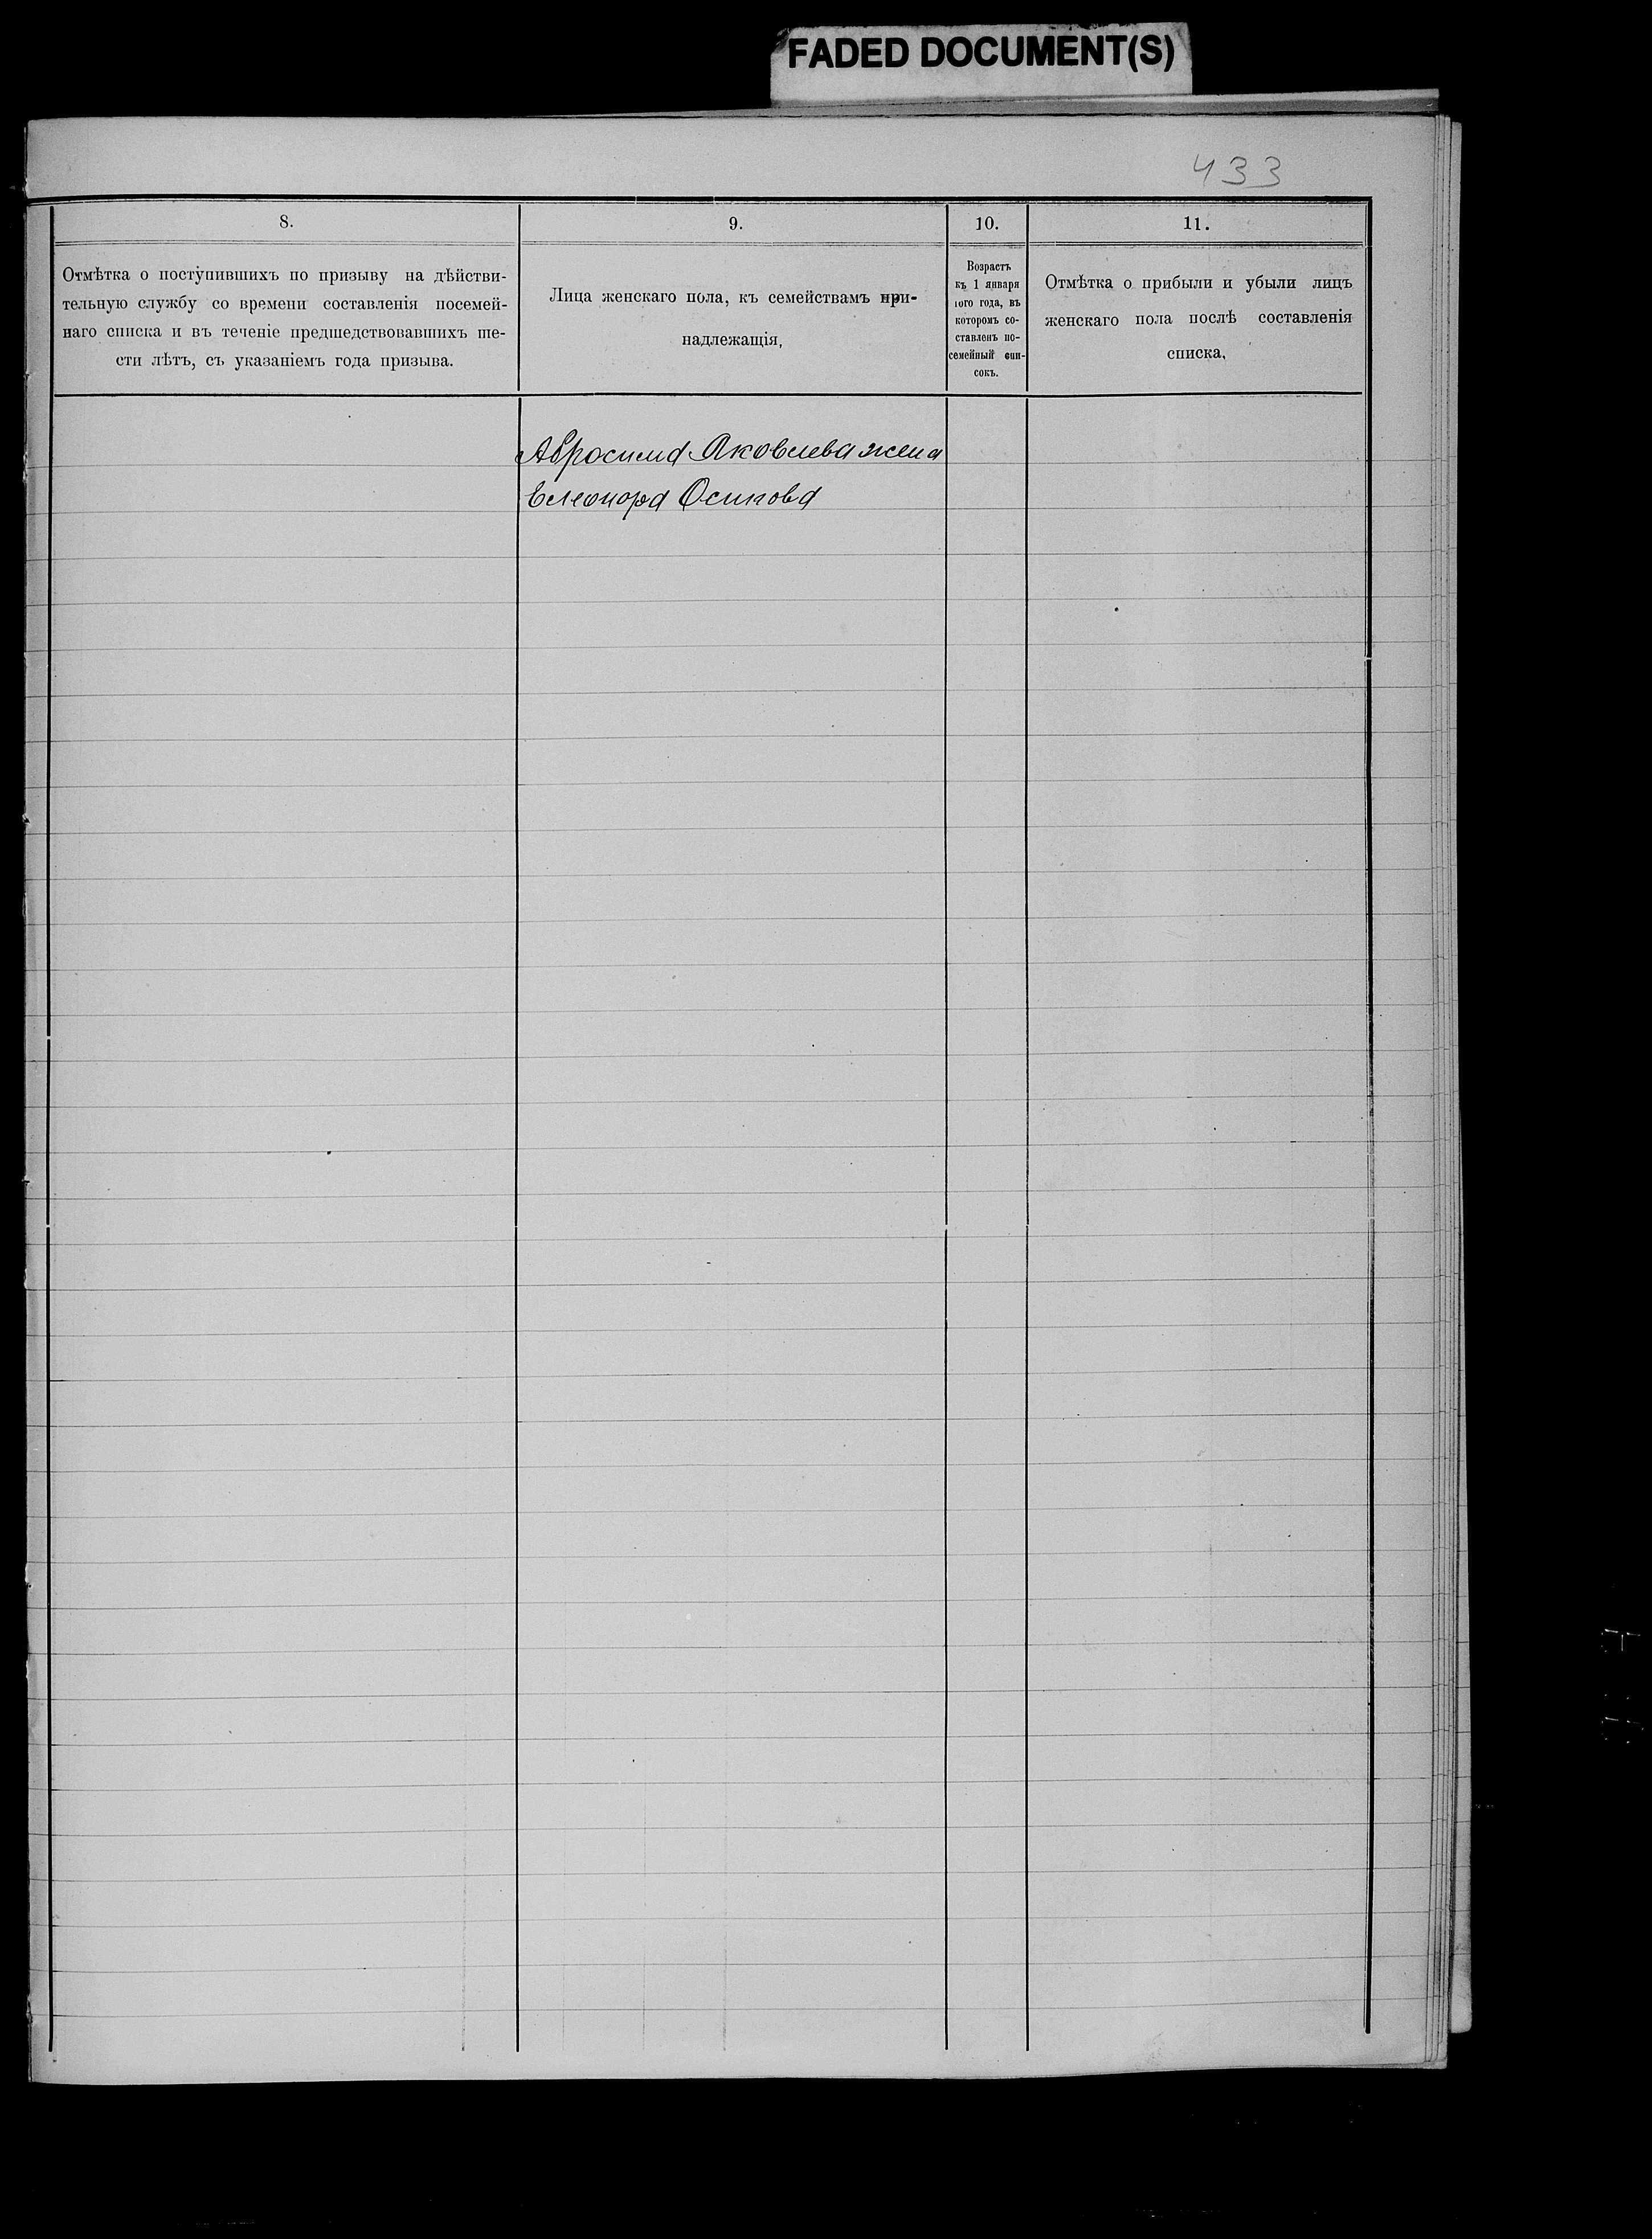 FADED DOCUMENT(S)
433
8.
9.
10.
11.
Отмѣтка о поступившихъ по призыву на дѣйстви-
тельную службу со времени составленія посемей-
наго списка и въ теченіе предшедствовавшихъ ше-
сти лѣтъ, съ указаніемъ года призыва.
Лица женскаго пола, къ семействамъ при-
надлежащія,
Возрастъ
къ 1 января
того года, въ
которомъ со-
ставленъ по-
семейный спи-
сокъ.
Отмѣтка о прибыли и убыли лицъ
женскаго пола послѣ составленія
списка,
Абросима Яковлева жена
Елеонора Осипова